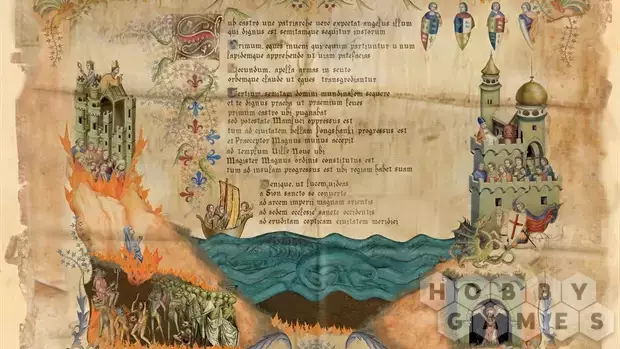 Sub castro une patriarche vero expectat angelus illum
qui dignus est semitamque sequitur instorum
Primum, eques inveni qui equum partiuntur et unum
lapidemque apprehende ut viam patefacias
Secundum, apella armas in scuto
ordemque claude ut eques transgrediantur
Tertium, semitam domini mundinalem sequere
et te dignus praebe ut praemium feres
primum castro ubi pugnabat
sed potestate Mamluci oppressus est
tum ad civitatem progressus est
et Praeceptor Magnus munus accepit
ad templum Ville Nove ubi
Magister Magnus ordinis constitutus est
tum ad insulam progressus est ubi regiam habet suam
Denique, ut lucem videas
a Sion sancto se converte
ad arcem imperii magnam orientis
ad sedem ecclesie sancte occidentis
ad eruditam copticam civitatem meridiei
HOBBY
GAMES